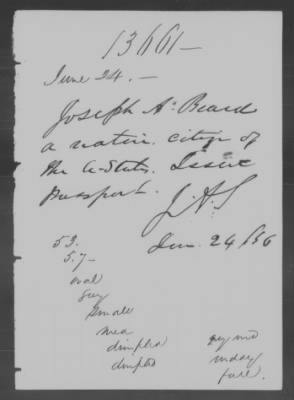 13661-
June 24.-
Joseph A. Beard
a native citizen of
the U-States. Issue
Passport.
J.A.S
Jun. 24/56
53.
5.7-
oval
Grey
small
med
dimpled
dimpled
full.